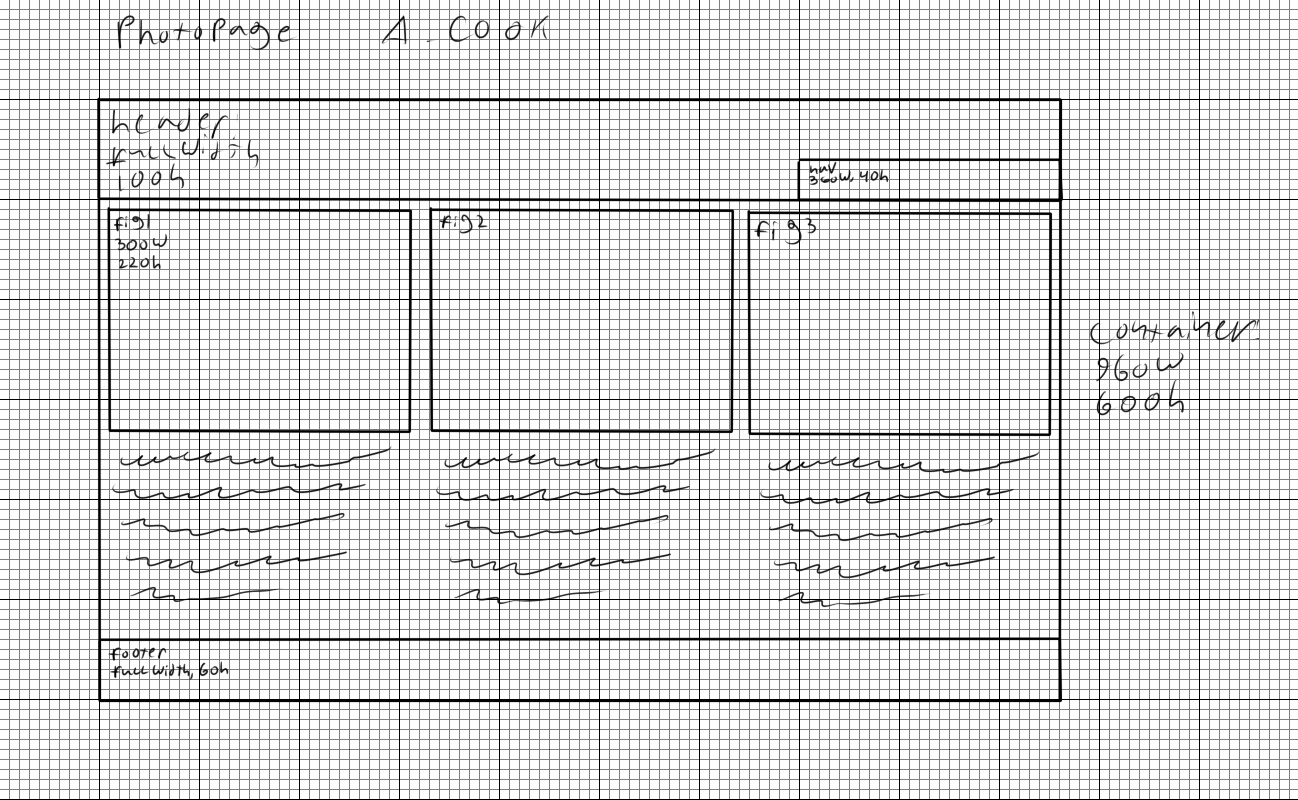 PhotoPage A. COOK
header
full width
100h
nav
360w, 40h
fig1
300w
220h
fig2
fig3
container
960w
600h
footer
full width, 60h